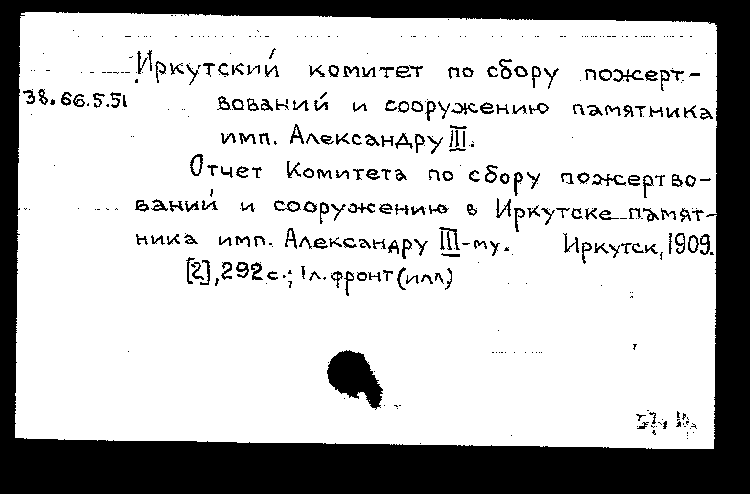 Иркутский комитет по сбору пожерт-
38.66.5.51 вований и сооружению памятника
имп. Александру III.
Отчет Комитета по сбору пожертво-
ваний и сооружению в Иркутске памят-
ника имп. Александру III-му. Иркутск, 1909.
[2], 292 с.; 1 л. фронт (илл)